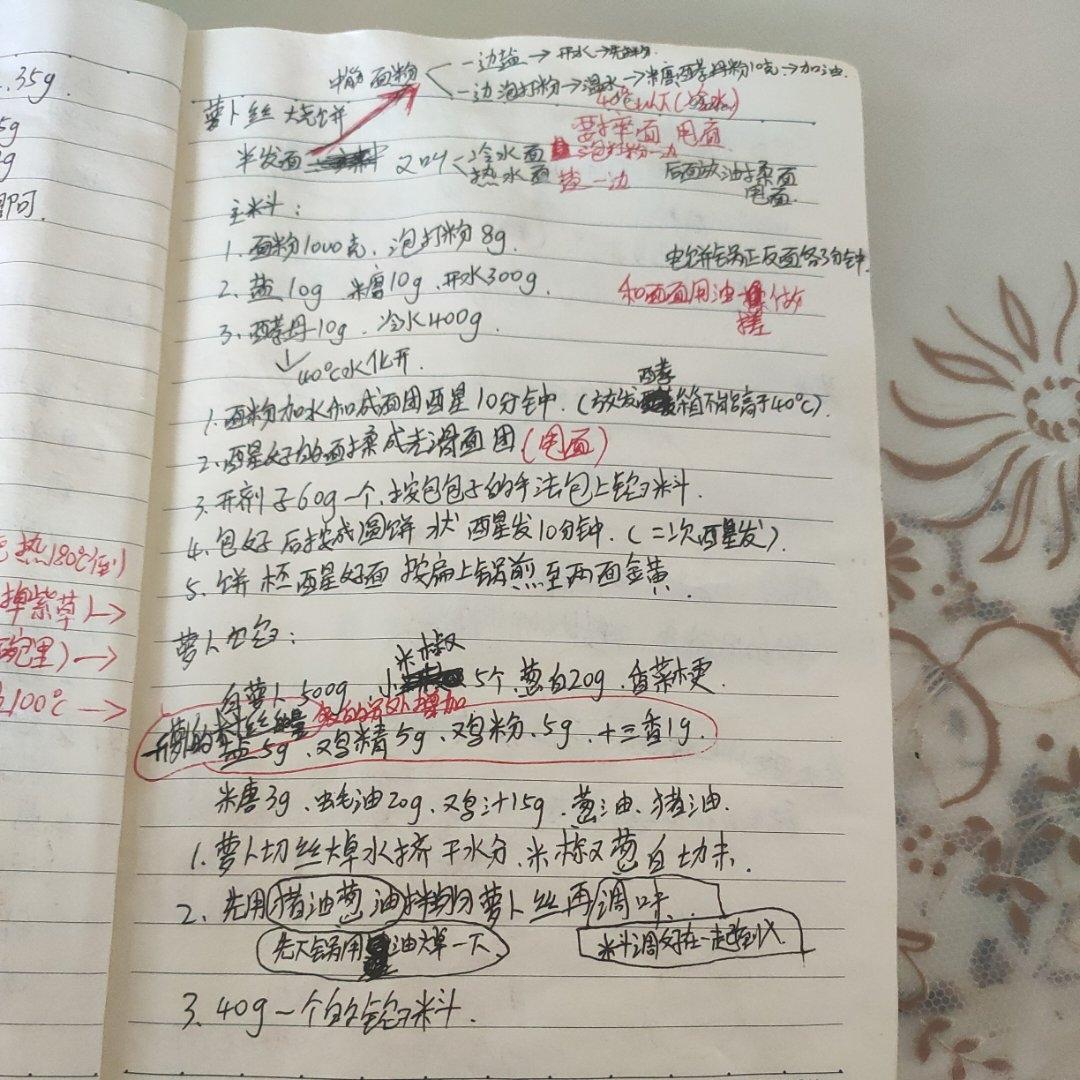 .35g
5g
g
阿.
热180℃倒
掉紫草)→
碗里)→
100℃→
中筋面粉
一边盐→开水→
一边泡打粉→温水→米唐酵母粉10克→加油.
40℃以下(冷水)
萝卜丝烧饼
要摔面 甩面
半发面 又叫
冷水面
热水面
泡打粉一边
盐一边
后面放油揉面
甩面
主料:
1. 面粉1000克、泡打粉8g.
电饼锅正反面各3分钟.
2. 盐10g 米唐10g、开水300g.
和面面用油做
搓
3. 酵母10g、冷水400g.
40℃水化开
1. 面粉加水和成面团酉星10分钟.(放发酵箱不能高于40℃).
2. 酉星好的面揉成光滑面团(甩面)
3. 开剂子60g一个,按包包子的手法包上馅料.
4. 包好后按成圆饼状 酉星发10分钟.(二次酉星发).
5. 饼柸酉星好面 按扁上锅煎至两面金黄.
萝卜馅:
米椒
白萝卜500g、小5个、葱白20g、香菜梗.
另外增加
盐5g、鸡精5g、鸡粉、5g、十三香1g.
米唐3g、蚝油20g、鸡汁15g、葱油、猪油.
1. 萝卜切丝焯水挤干水分、米椒葱白切末.
2. 先用猪油葱油拌匀萝卜丝再调味.
先下锅用油焯一下
料调好在一起
3. 40g一个的馅料.